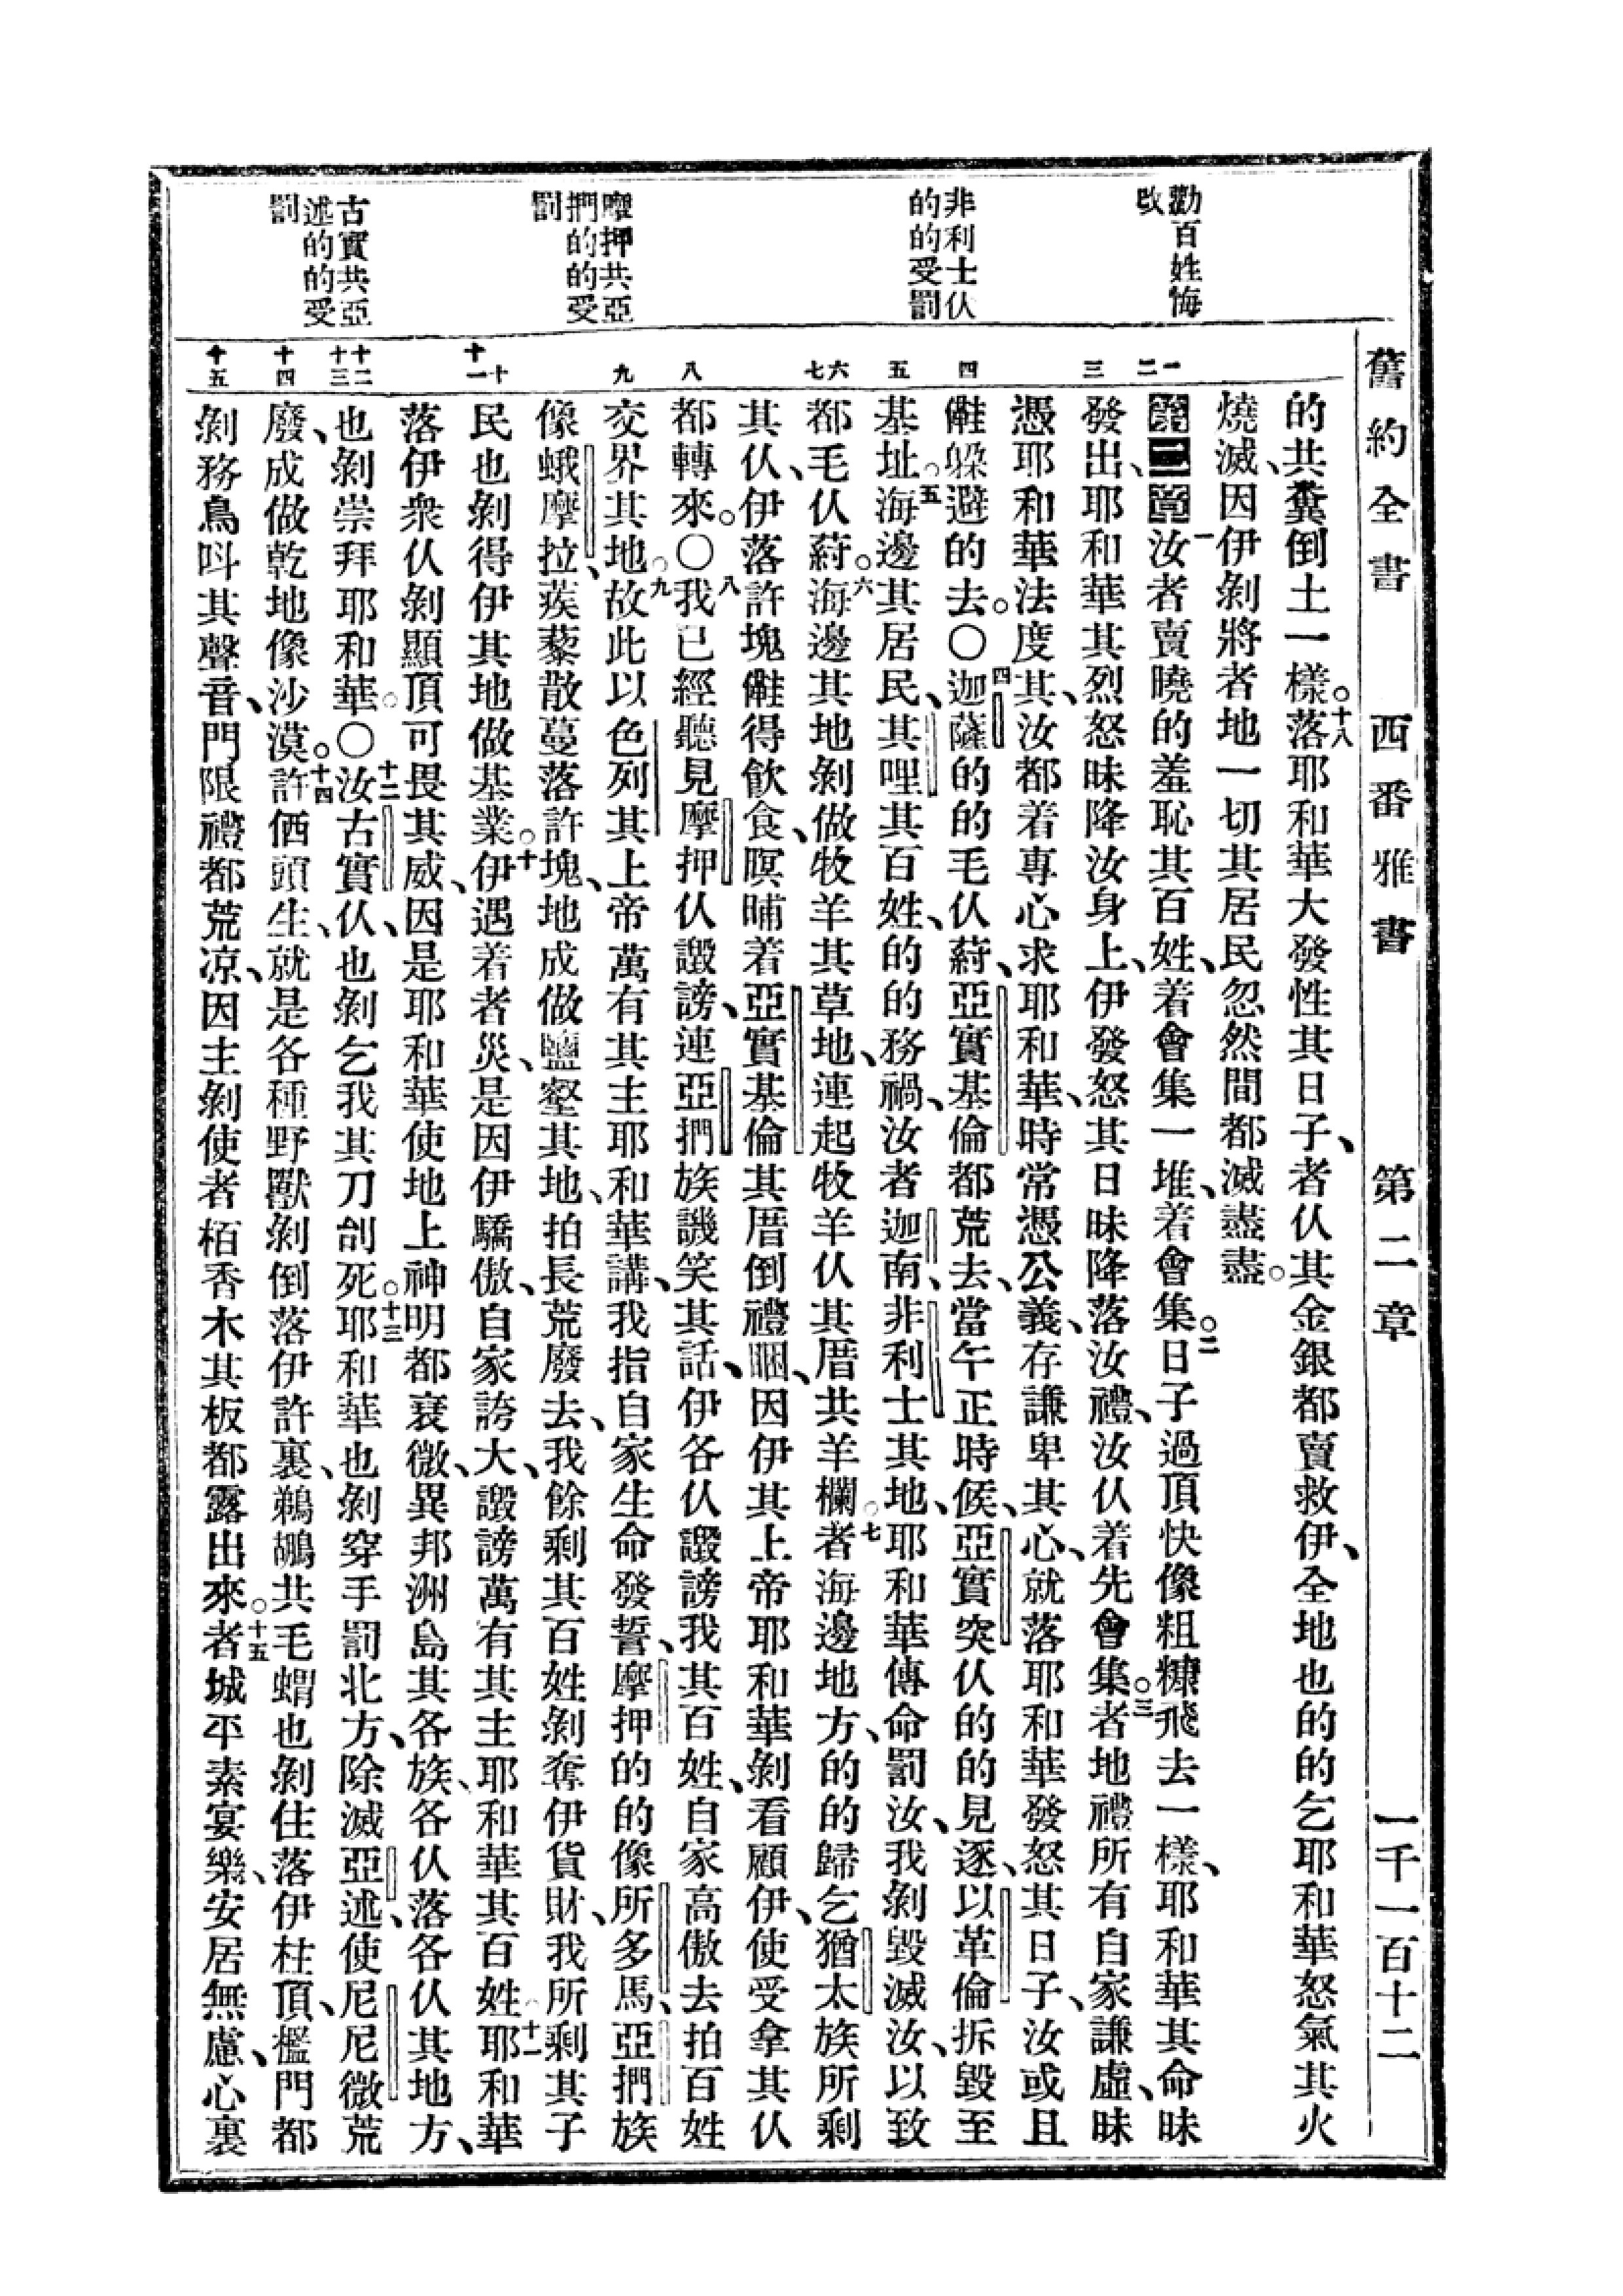 舊約全書 西番雅書 第二章 一千一百十二
勸百姓悔
改
非利士仸
的的受罰
摩押共亞
捫的的受
罰
古實共亞
述的的受
罰
一
二
三
四
五
六
七
八
九
十
十一
十二
十三
十四
十五
的共糞倒土一樣。十八落耶和華大發性其日子、者仸其金銀都賣救伊、全地也的的乞耶和華怒氣其火
燒滅、因伊剝將者地一切其居民忽然間都滅盡盡。
第二章一汝者賣曉的羞恥其百姓、着會集一堆、着會集。二日子過頂快像粗糠飛去一樣、耶和華其命昧
發出、耶和華其烈怒昧降汝身上、伊發怒其日昧降落汝禮、汝仸着先會集。三者地禮所有自家謙虛、昧
憑耶和華法度其、汝都着專心求耶和華、時常憑公義、存謙卑其心、就落耶和華發怒其日子、汝或且
儺躱避的去。〇四迦薩的的毛仸蒔、亞實基倫都荒去、當午正時候、亞實突仸的的見逐、以革倫拆毀至
基址。五海邊其居民、其哩其百姓、的的務禍、汝者迦南、非利士其地、耶和華傳命罰汝、我剝毀滅汝、以致
都毛仸蒔。六海邊其地剝做牧羊其草地、連起牧羊仸其厝共羊欄。七者海邊地方、的的歸乞猶太族所剩
其仸、伊落許塊儺得飲食、暝晡着亞實基倫其厝倒禮睏、因伊其上帝耶和華剝看顧伊、使受拿其仸
都轉來。〇八我已經聽見摩押仸譭謗、連亞捫族譏笑其話、伊各仸譭謗我其百姓、自家高傲去拍百姓
交界其地。九故此以色列其上帝萬有其主耶和華講、我指自家生命發誓、摩押的的像所多馬、亞捫族
像蛾摩拉、蒺藜散蔓落許塊、地成做鹽壑其地、拍長荒廢去、我餘剩其百姓剝奪伊貨財、我所剩其子
民也剝得伊其地做基業。十伊遇着者災、是因伊驕傲、自家誇大、譭謗萬有其主耶和華其百姓。十一耶和華
落伊衆仸剝顯頂可畏其威、因是耶和華使地上神明都衰微、異邦洲島其各族、各仸落各仸其地方、
也剝崇拜耶和華。〇十二汝古實仸、也剝乞我其刀刣死。十三耶和華也剝穿手罰北方、除滅亞述、使尼尼微荒
廢、成做乾地像沙漠。十四許伵頭生、就是各種野獸剝倒落伊許裏、鵜鶘共毛蝟也剝住落伊柱頂、檻門都
剝務鳥呌其聲音、門限禮都荒凉、因主剝使者栢香木其板都露出來。十五者城平素宴樂、安居無慮、心裏